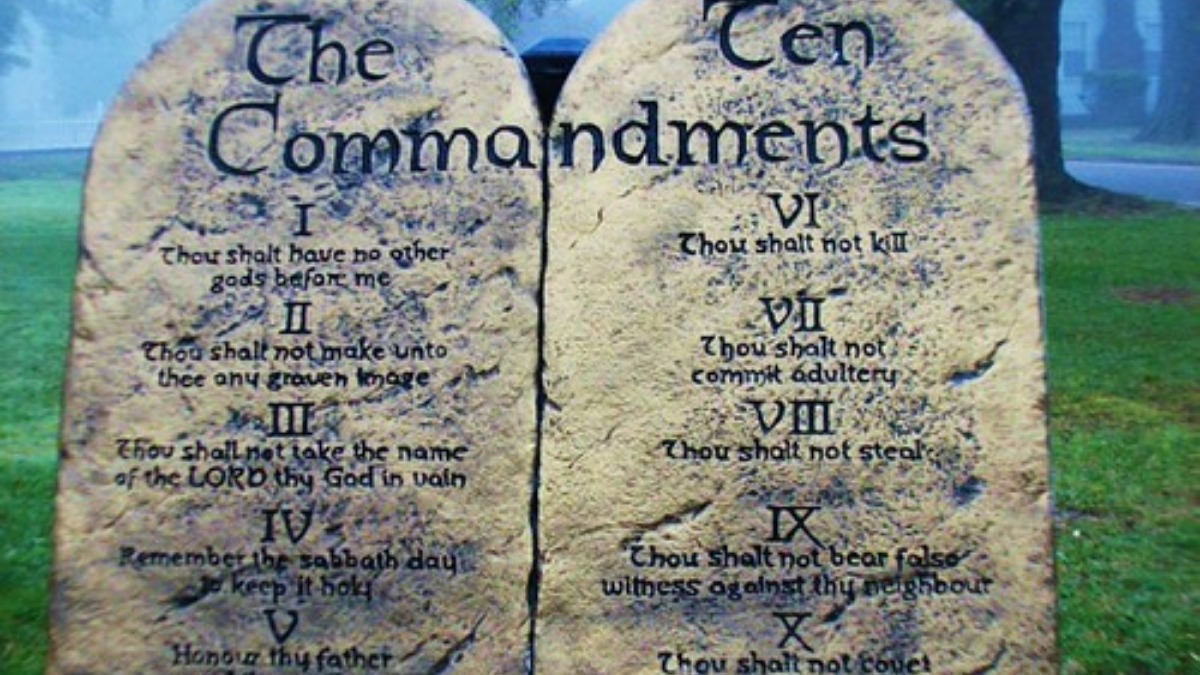 The Ten
Commandments
I
Thou shalt have no other
gods before me
II
Thou shalt not make unto
thee any graven image
III
Thou shalt not take the name
of the LORD thy God in vain
IV
Remember the sabbath day
to keep it holy
V
Honour thy father
VI
Thou shalt not kill
VII
Thou shalt not
commit adultery
VIII
Thou shalt not steal
IX
Thou shalt not bear false
witness against thy neighbour
X
Thou shalt not covet